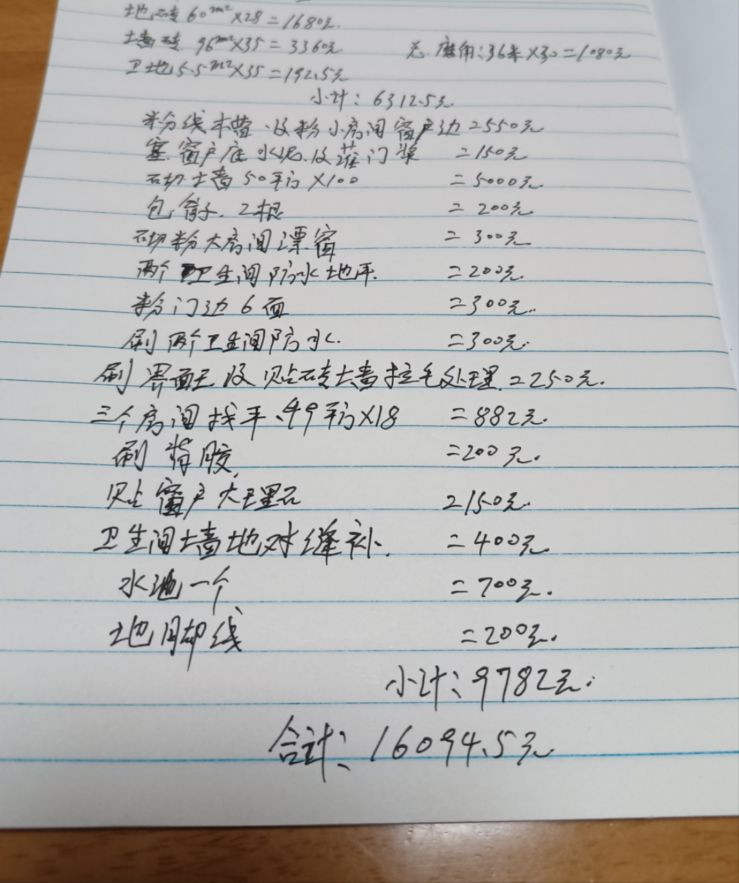 地砖 60m²×28=1680元.
墙砖 96m²×35=3360元 磨角:36米×30=1080元
卫地5.5m²×35=192.5元
小计:6312.5元
粉线槽.及粉小房间窗户边 2550元
塞窗户底水泥及灌门浆 =150元
砌墙50平方×100 =5000元
包管子.2根 =200元
砌粉大房间漂窗 =300元
两个卫生间防水地坪. =200元.
粉门边6面 =300元.
刷两个卫生间防水. =300元.
刷界面王及贴砖墙拉毛处理.=250元.
三个房间找平.49平方×18 =882元.
刷背胶 =200元.
贴窗户大理石 =150元.
卫生间墙地对缝补. =400元
水池一个 =700元.
地脚线 =200元.
小计:9782元.
合计:16094.5元